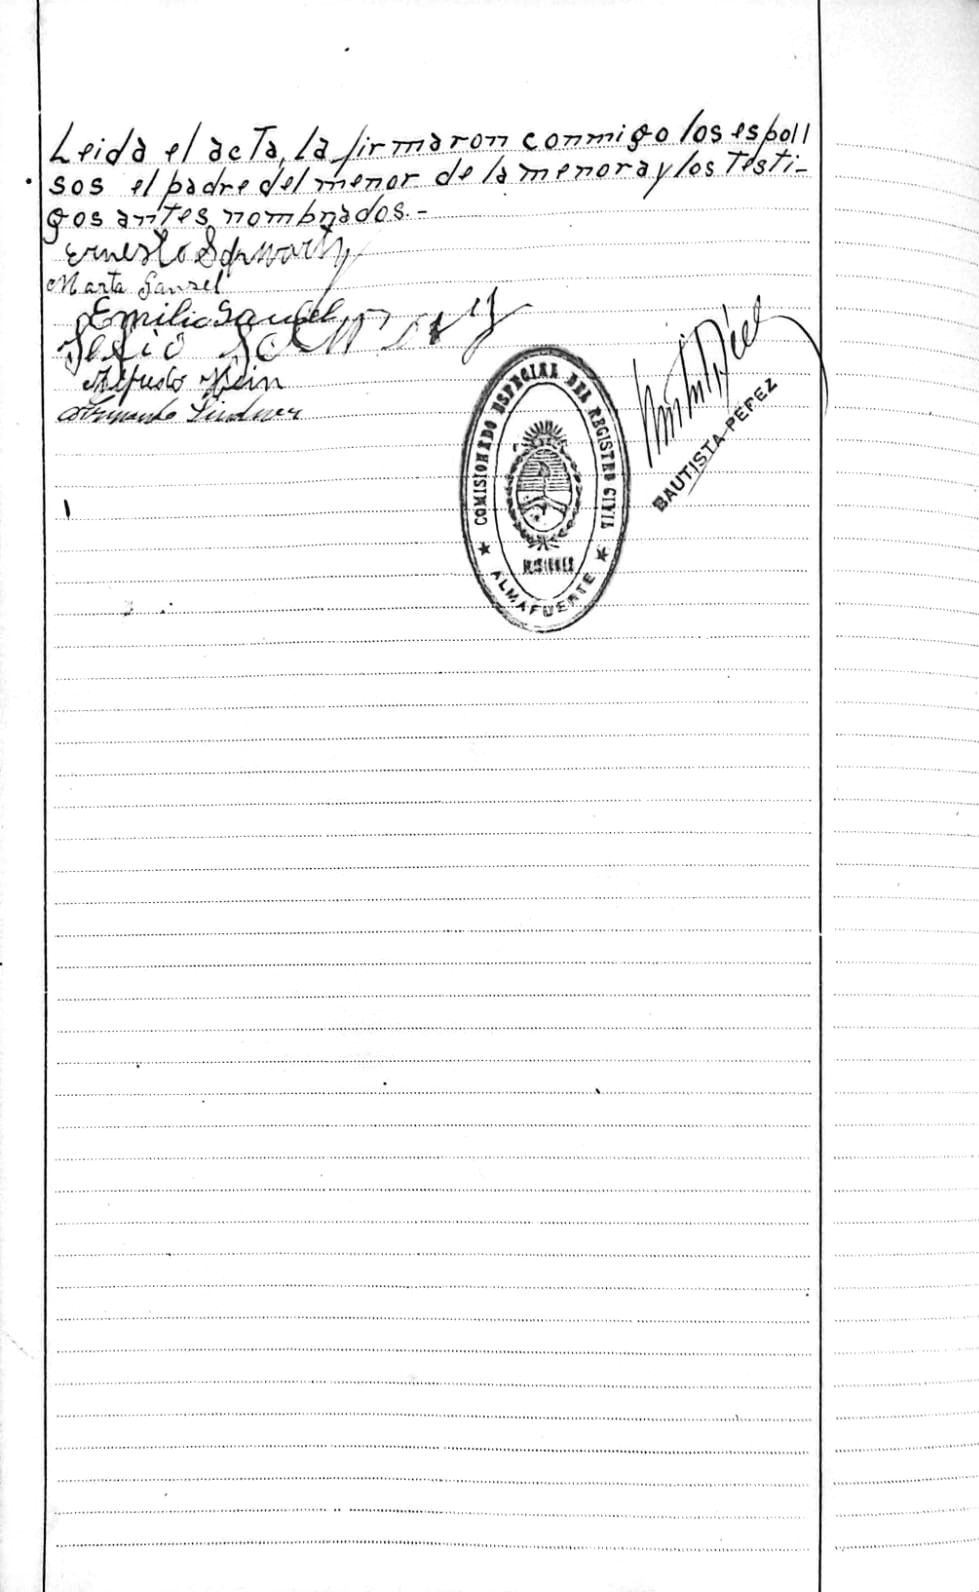 Leida el acta, la firmaron conmigo los espoll
sos el padre del menor de la menora y los testi-
gos antes nombrados.-
Ernesto Schwartz
Marta Gansel
Emilio Gansel
Alfredo Klein
Armando Lindner
COMISIONADO ESPECIAL DEL REGISTRO CIVIL
MISIONES
★ ALMAFUERTE ★
BAUTISTA PEREZ